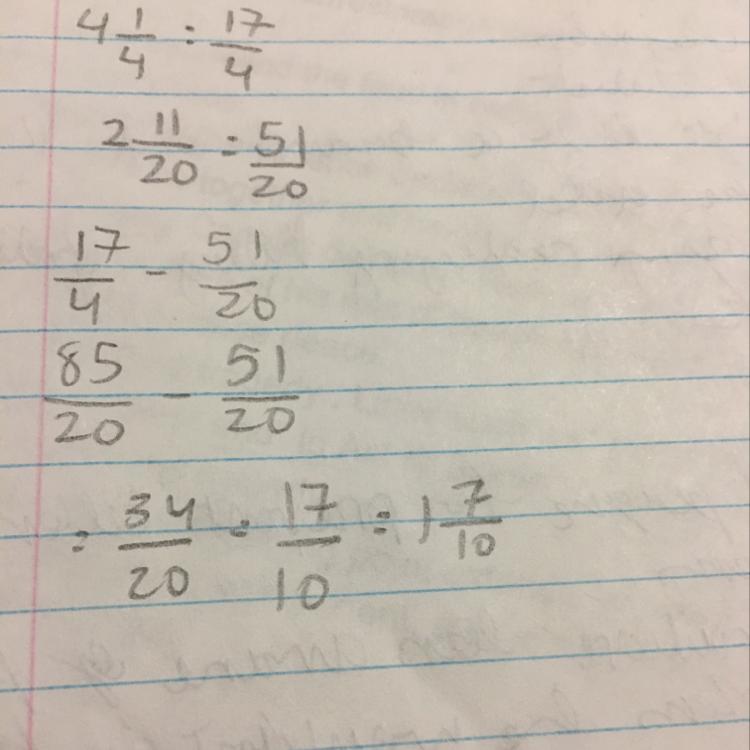 4 1/4 = 17/4
2 11/20 = 51/20
17/4 - 51/20
85/20 - 51/20
= 34/20 = 17/10 = 1 7/10